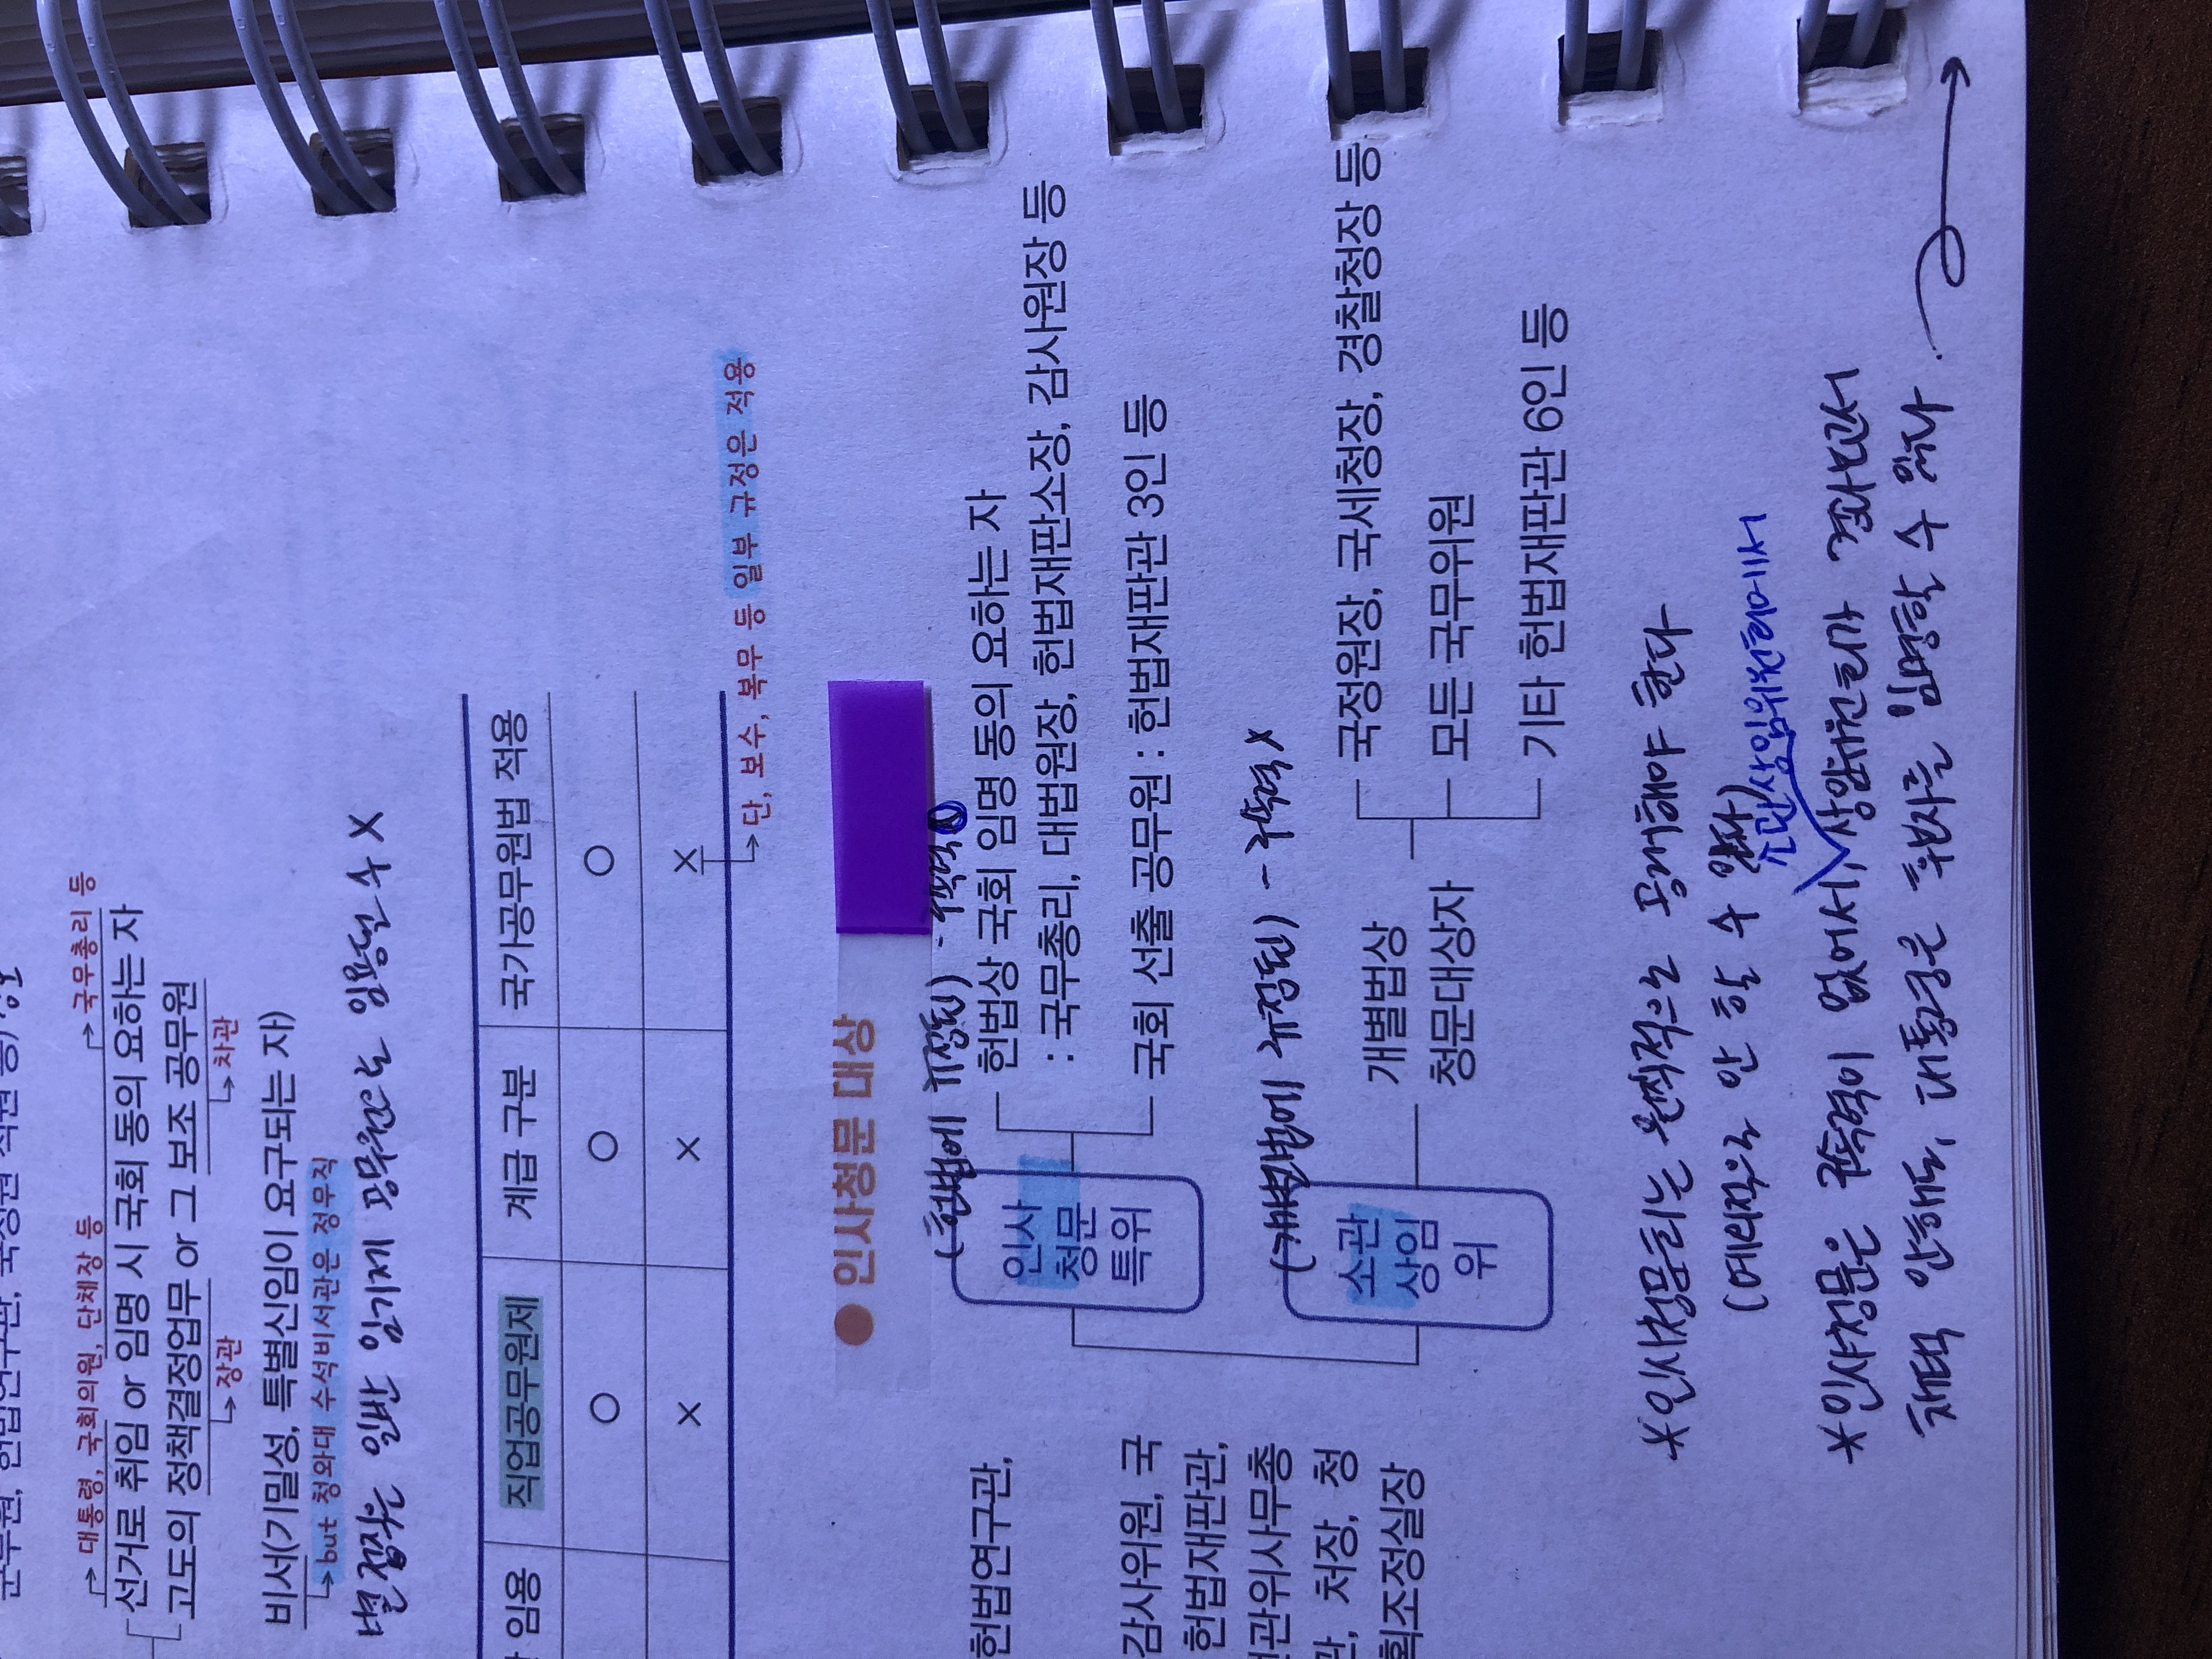 → 대통령, 국회의원, 단체장 등 → 국무총리 등
선거로 취임 or 임명 시 국회 동의 요하는 자
고도의 정책결정업무 or 그 보조 공무원
→ 장관 → 차관
비서(기밀성, 특별신임이 요구되는 자)
→ but 청와대 수석비서관은 정무직
별정직은 일반 임기제 공무원으로 임용될 수 X
임용 직업공무원제 계급 구분 국가공무원법 적용
○ ○ ○
× × ×
→ 단, 보수, 복무 등 일부 규정은 적용
● 인사청문 대상
(헌법에 규정된) - 구속력O
인사
청문
특위
헌법상 국회 임명 동의 요하는 자
: 국무총리, 대법원장, 헌법재판소장, 감사원장 등
국회 선출 공무원 : 헌법재판관 3인 등
(개별법에 규정된) - 구속력X
소관
상임
위
개별법상
청문대상자
국정원장, 국세청장, 경찰청장 등
모든 국무위원
기타 헌법재판관 6인 등
헌법연구관,
감사위원, 국
헌법재판관,
관위사무총
관, 처장, 청
획조정실장
*인사청문회는 원칙적으로 공개해야 한다
(예외적으로 안 할 수 있다)
소관상임위원회에서
*인사청문은 구속력이 없어서, 상임위원회가 경과보고서
채택 안해도, 대통령은 후보자를 임명할 수 있다.